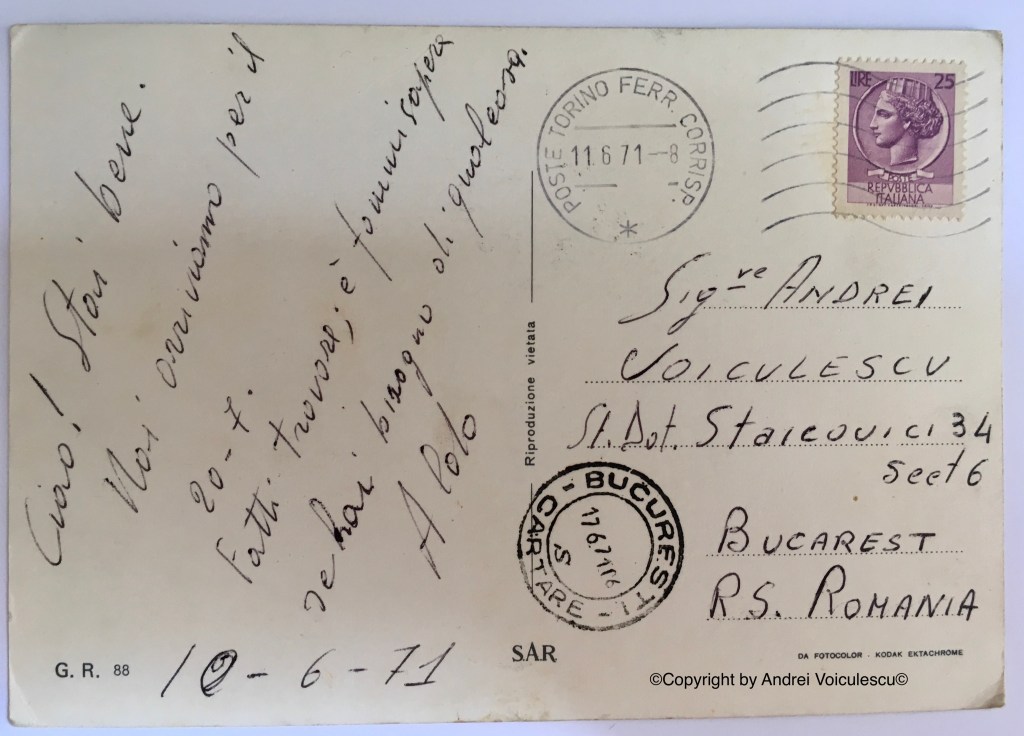 Ciao! Stai bene.
Noi arriviamo per il
20-7.
Fatti trovare; e fammi sapere
se hai bisogno di qualcosa.
Aldo
10-6-71
G. R. 88
Riproduzione vietata
SAR
POSTE TORINO FERR. CORRISP.
11.6.71-8
LIRE 25
POSTE
REPVBBLICA
ITALIANA
Sigre ANDREI
VOICULESCU
St. Dot. Staicovici 34
sect 6
BUCAREST
R.S. ROMANIA
BUCUREȘTI - CARTARE
17.6.71
S
DA FOTOCOLOR - KODAK EKTACHROME
©Copyright by Andrei Voiculescu©